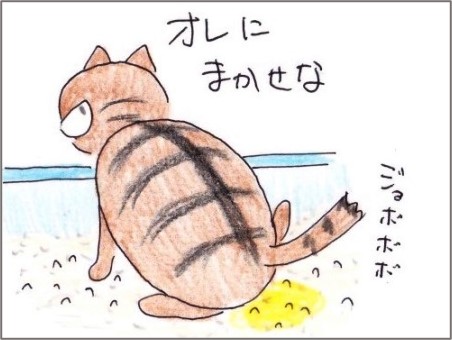 オレに
まかせな
ジョボボボ